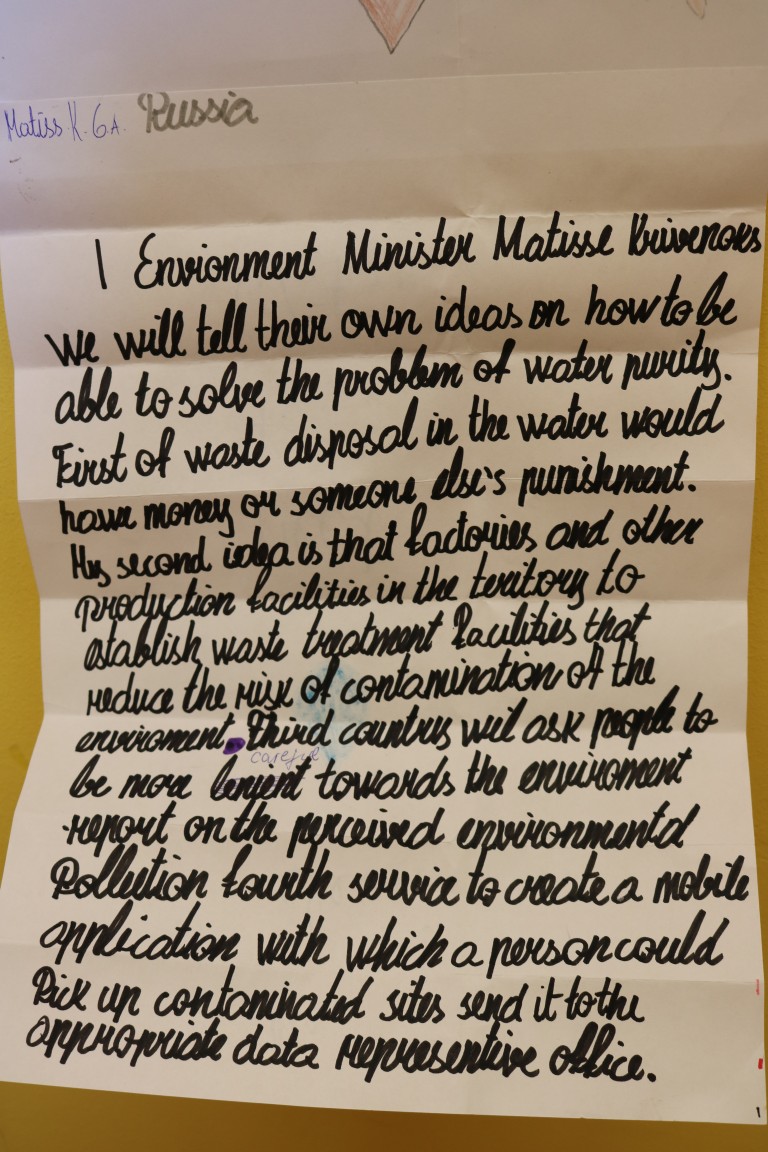 Matīss K. 6.A. Russia
I Envionment Minister Matisse Krivenoks
we will tell their own ideas on how to be
able to solve the problem of water purity.
First of waste disposal in the water would
have money or someone else's punishment.
My second idea is that factories and other
production facilities in the teritory to
establish waste treatment facilities that
reduce the risk of contamination of the
enviroment. Third country wil ask people to
careful
be more lenient towards the enviroment
report on the perceived environmentd
Pollution fourth service to create a mobile
application with which a person could
Pick up contaminated sites send it to the
appropriate data representive office.